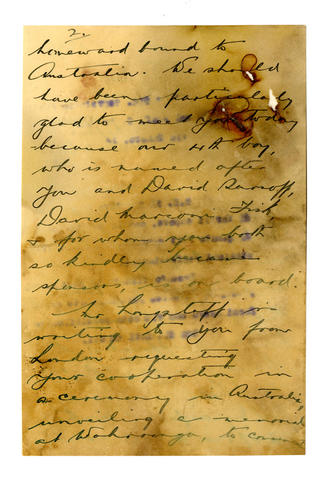 2.
homeward bound to
Australia. We should
have been particularly
glad to meet you today
because our 4th boy,
who is named after
you and David Sarnoff,
David Marconi Fisk
& for whom you both
so kindly became
sponsors, is on board.
Mr Longstaff is
writing to you from
London requesting
your cooperation in
a ceremony in Australia,
unveiling a memorial
at Wahroonga, to